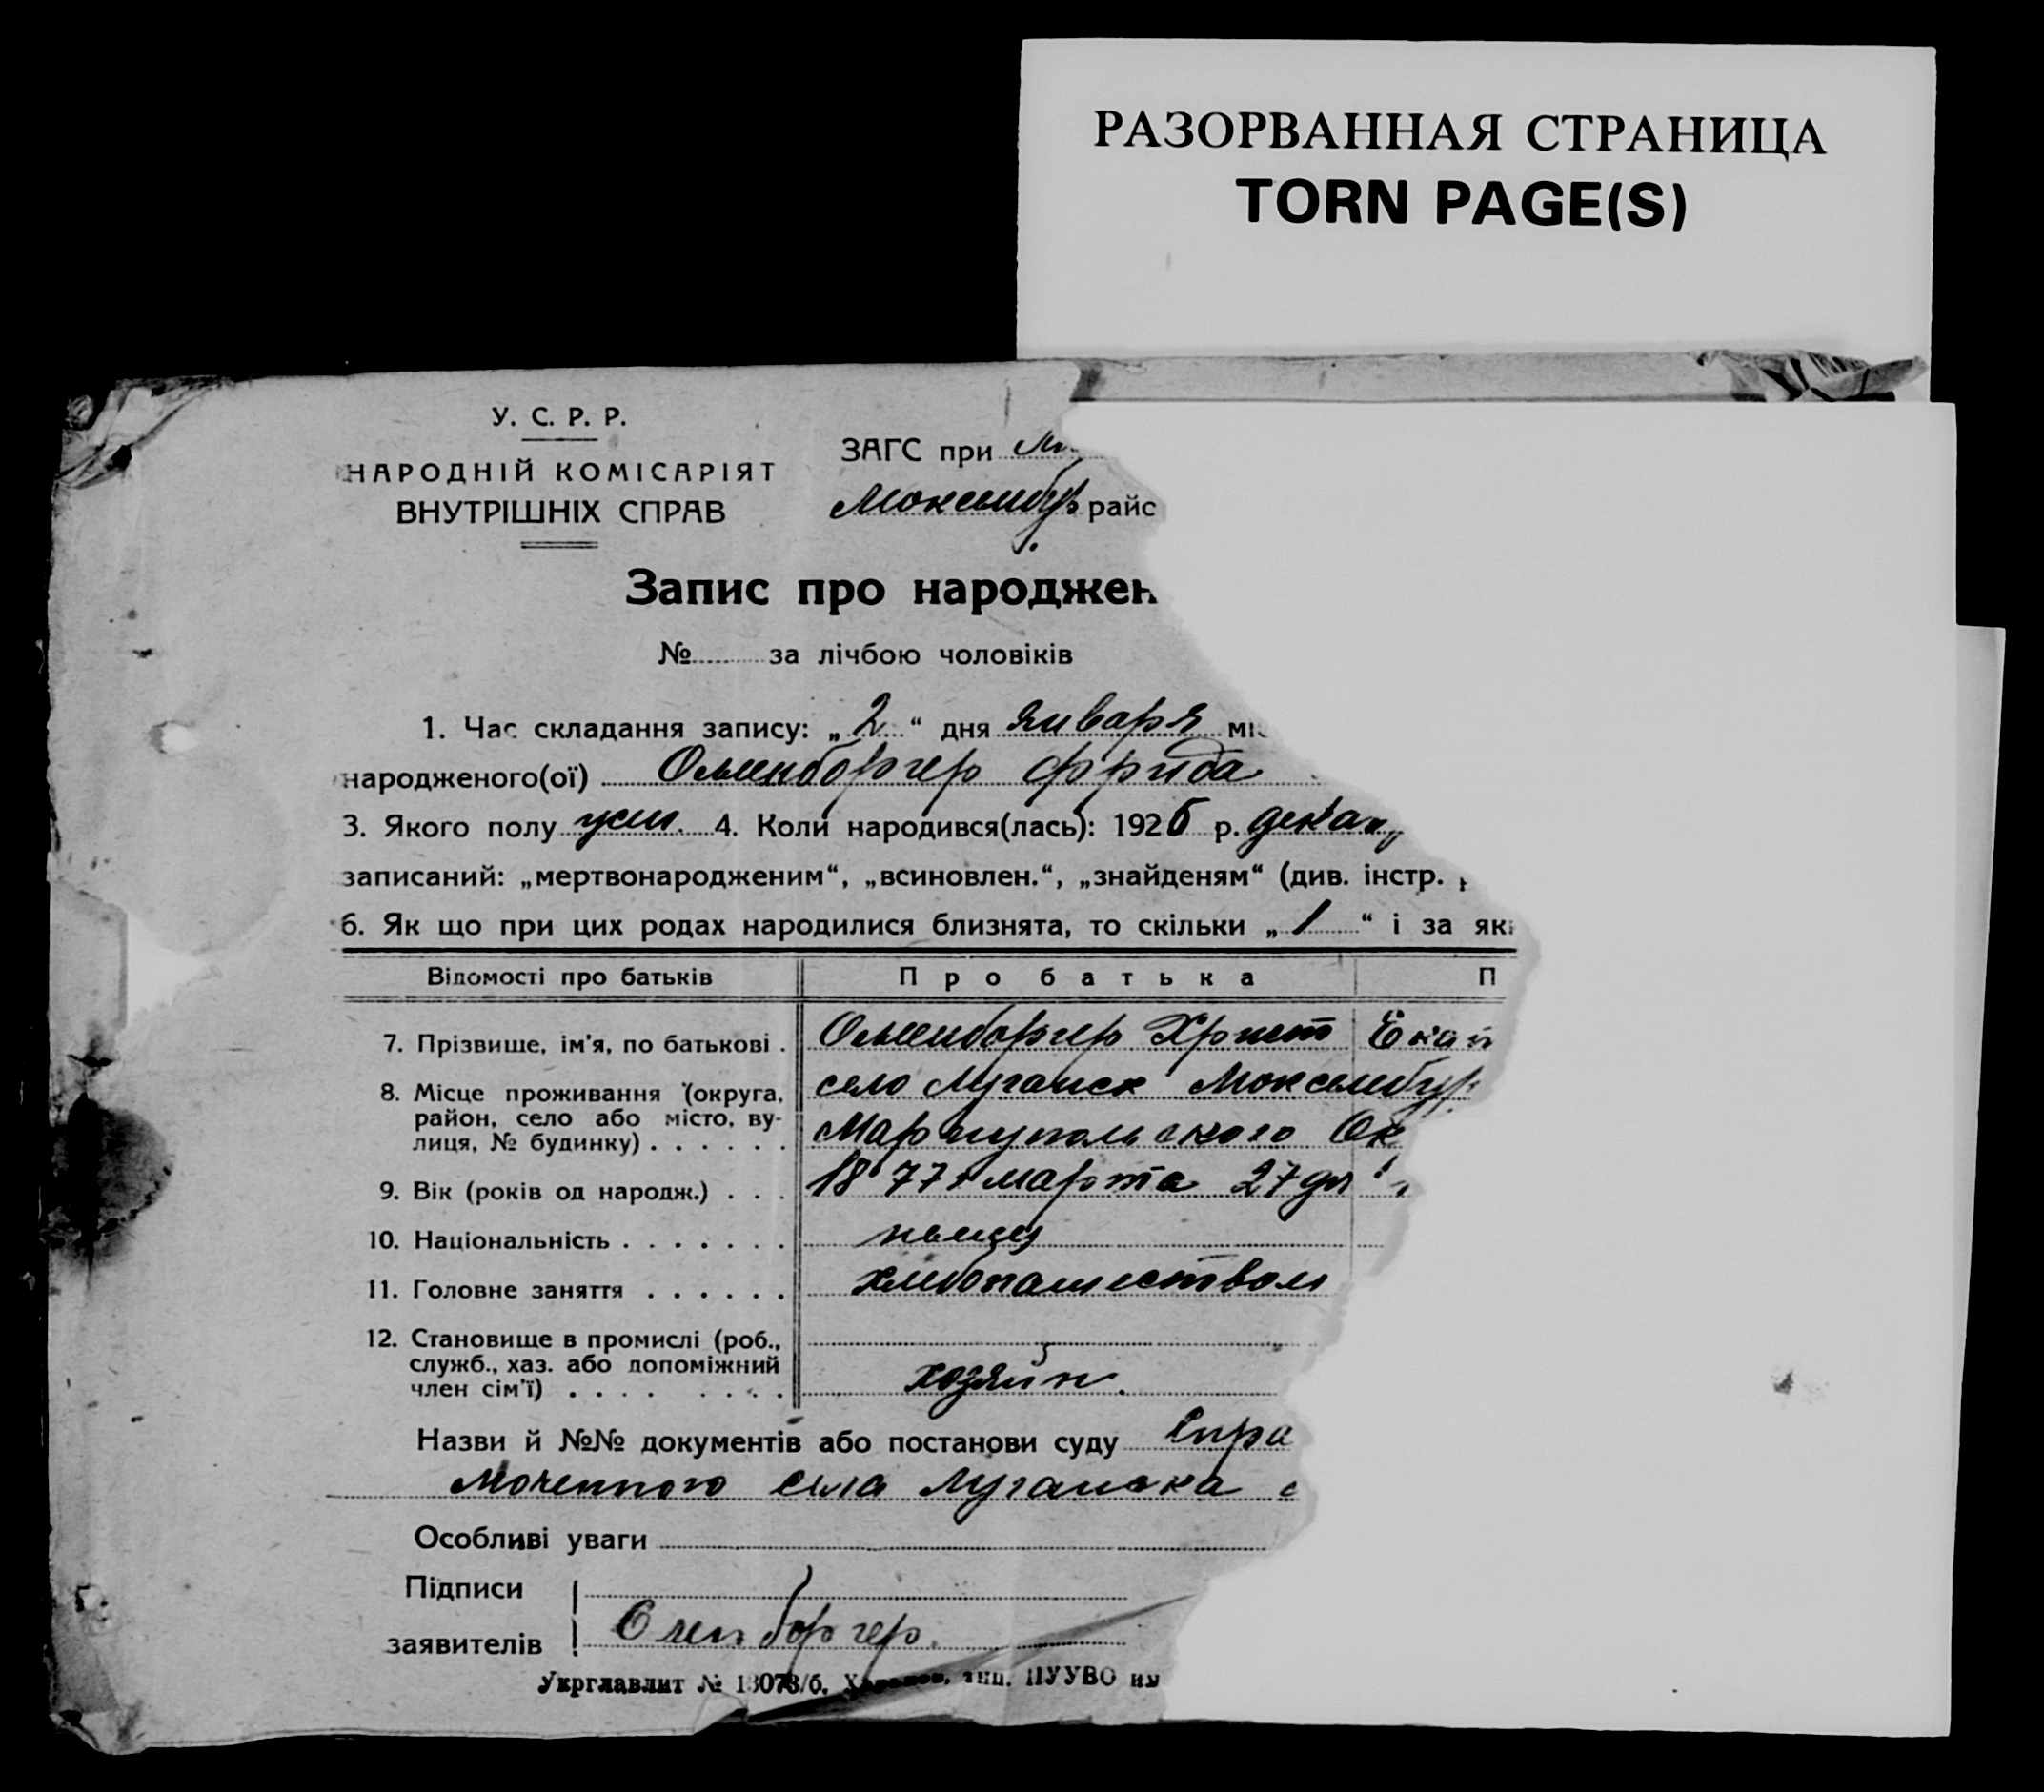 РАЗОРВАННАЯ СТРАНИЦА
TORN PAGE(S)
У. С. Р. Р.
НАРОДНІЙ КОМІСАРІЯТ
ВНУТРІШНІХ СПРАВ
ЗАГС при
райс
Запис про народжен
№ за лічбою чоловіків
1. Час складання запису: „2“ дня января міс
народженого(ої) Оленборгер Фрида
3. Якого полу жен. 4. Коли народився(лась): 1926 р. дека
записаний: „мертвонародженим“, „всиновлен.“, „знайденям“ (див. інстр.
6. Як що при цих родах народилися близнята, то скільки „1“ і за як
Відомості про батьків Про батька П
7. Прізвище, ім'я, по батькові . Оленборгер Христ Екат
8. Місце проживання (округа, село Луганск Мокселибур
район, село або місто, ву-
лиця, № будинку) . . . . . . Мариупольского Ок
9. Вік (років од народж.) . . . 1877 г марта 27 дня
10. Національність . . . . . . . немец
11. Головне заняття . . . . . . хлебопашеством
12. Становище в промислі (роб.,
служб., хаз. або допоміжний
член сім'ї) . . . . . . . . хозяин.
Назви й №№ документів або постанови суду Спра
моченного села Луганска с
Особливі уваги
Підписи
заявителів Оленборгер.
Укрглавлит № 13073/б. Харьков, тип. ПУУВО им